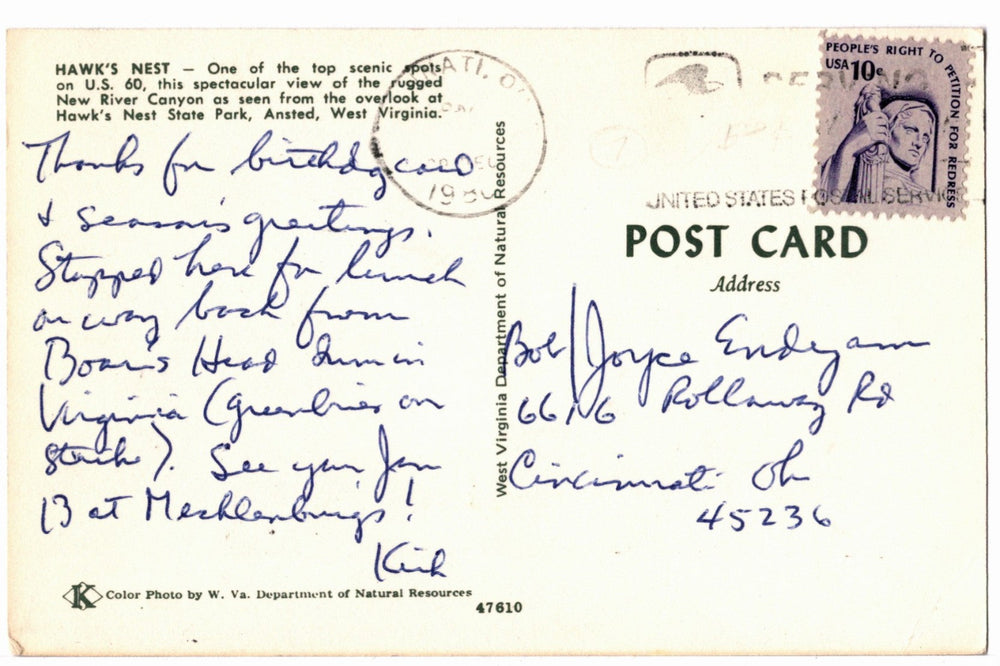 HAWK'S NEST — One of the top scenic spots
on U.S. 60, this spectacular view of the rugged
New River Canyon as seen from the overlook at
Hawk's Nest State Park, Ansted, West Virginia.
Thanks for birthday card
& season's greetings.
Stopped here for lunch
on way back from
Boar's Head Inn in
Virginia (Greenbrier on
strike). See you Jan
13 at Mecklenburgs!
Kirk
Color Photo by W. Va. Department of Natural Resources
47610
West Virginia Department of Natural Resources
ATI, O
DEC
1980
UNITED STATES POSTAL SERVICE
PEOPLE'S RIGHT TO PETITION FOR REDRESS
USA 10c
POST CARD
Address
Bob/Joyce
6616 Rollaway Rd
Cincinnati Oh
45236